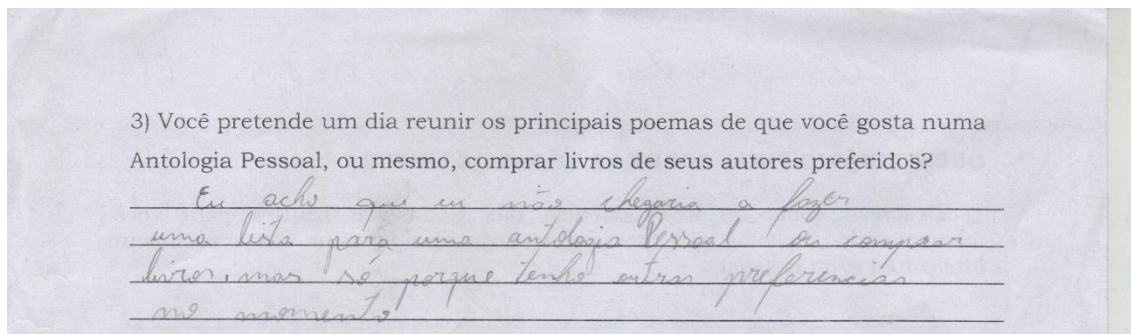 3) Você pretende um dia reunir os principais poemas de que você gosta numa
Antologia Pessoal, ou mesmo, comprar livros de seus autores preferidos?
Eu acho que eu não chegaria a fazer
uma lista para uma antologia Pessoal ou comprar
livros, mas só porque tenho outras preferencias
no momento